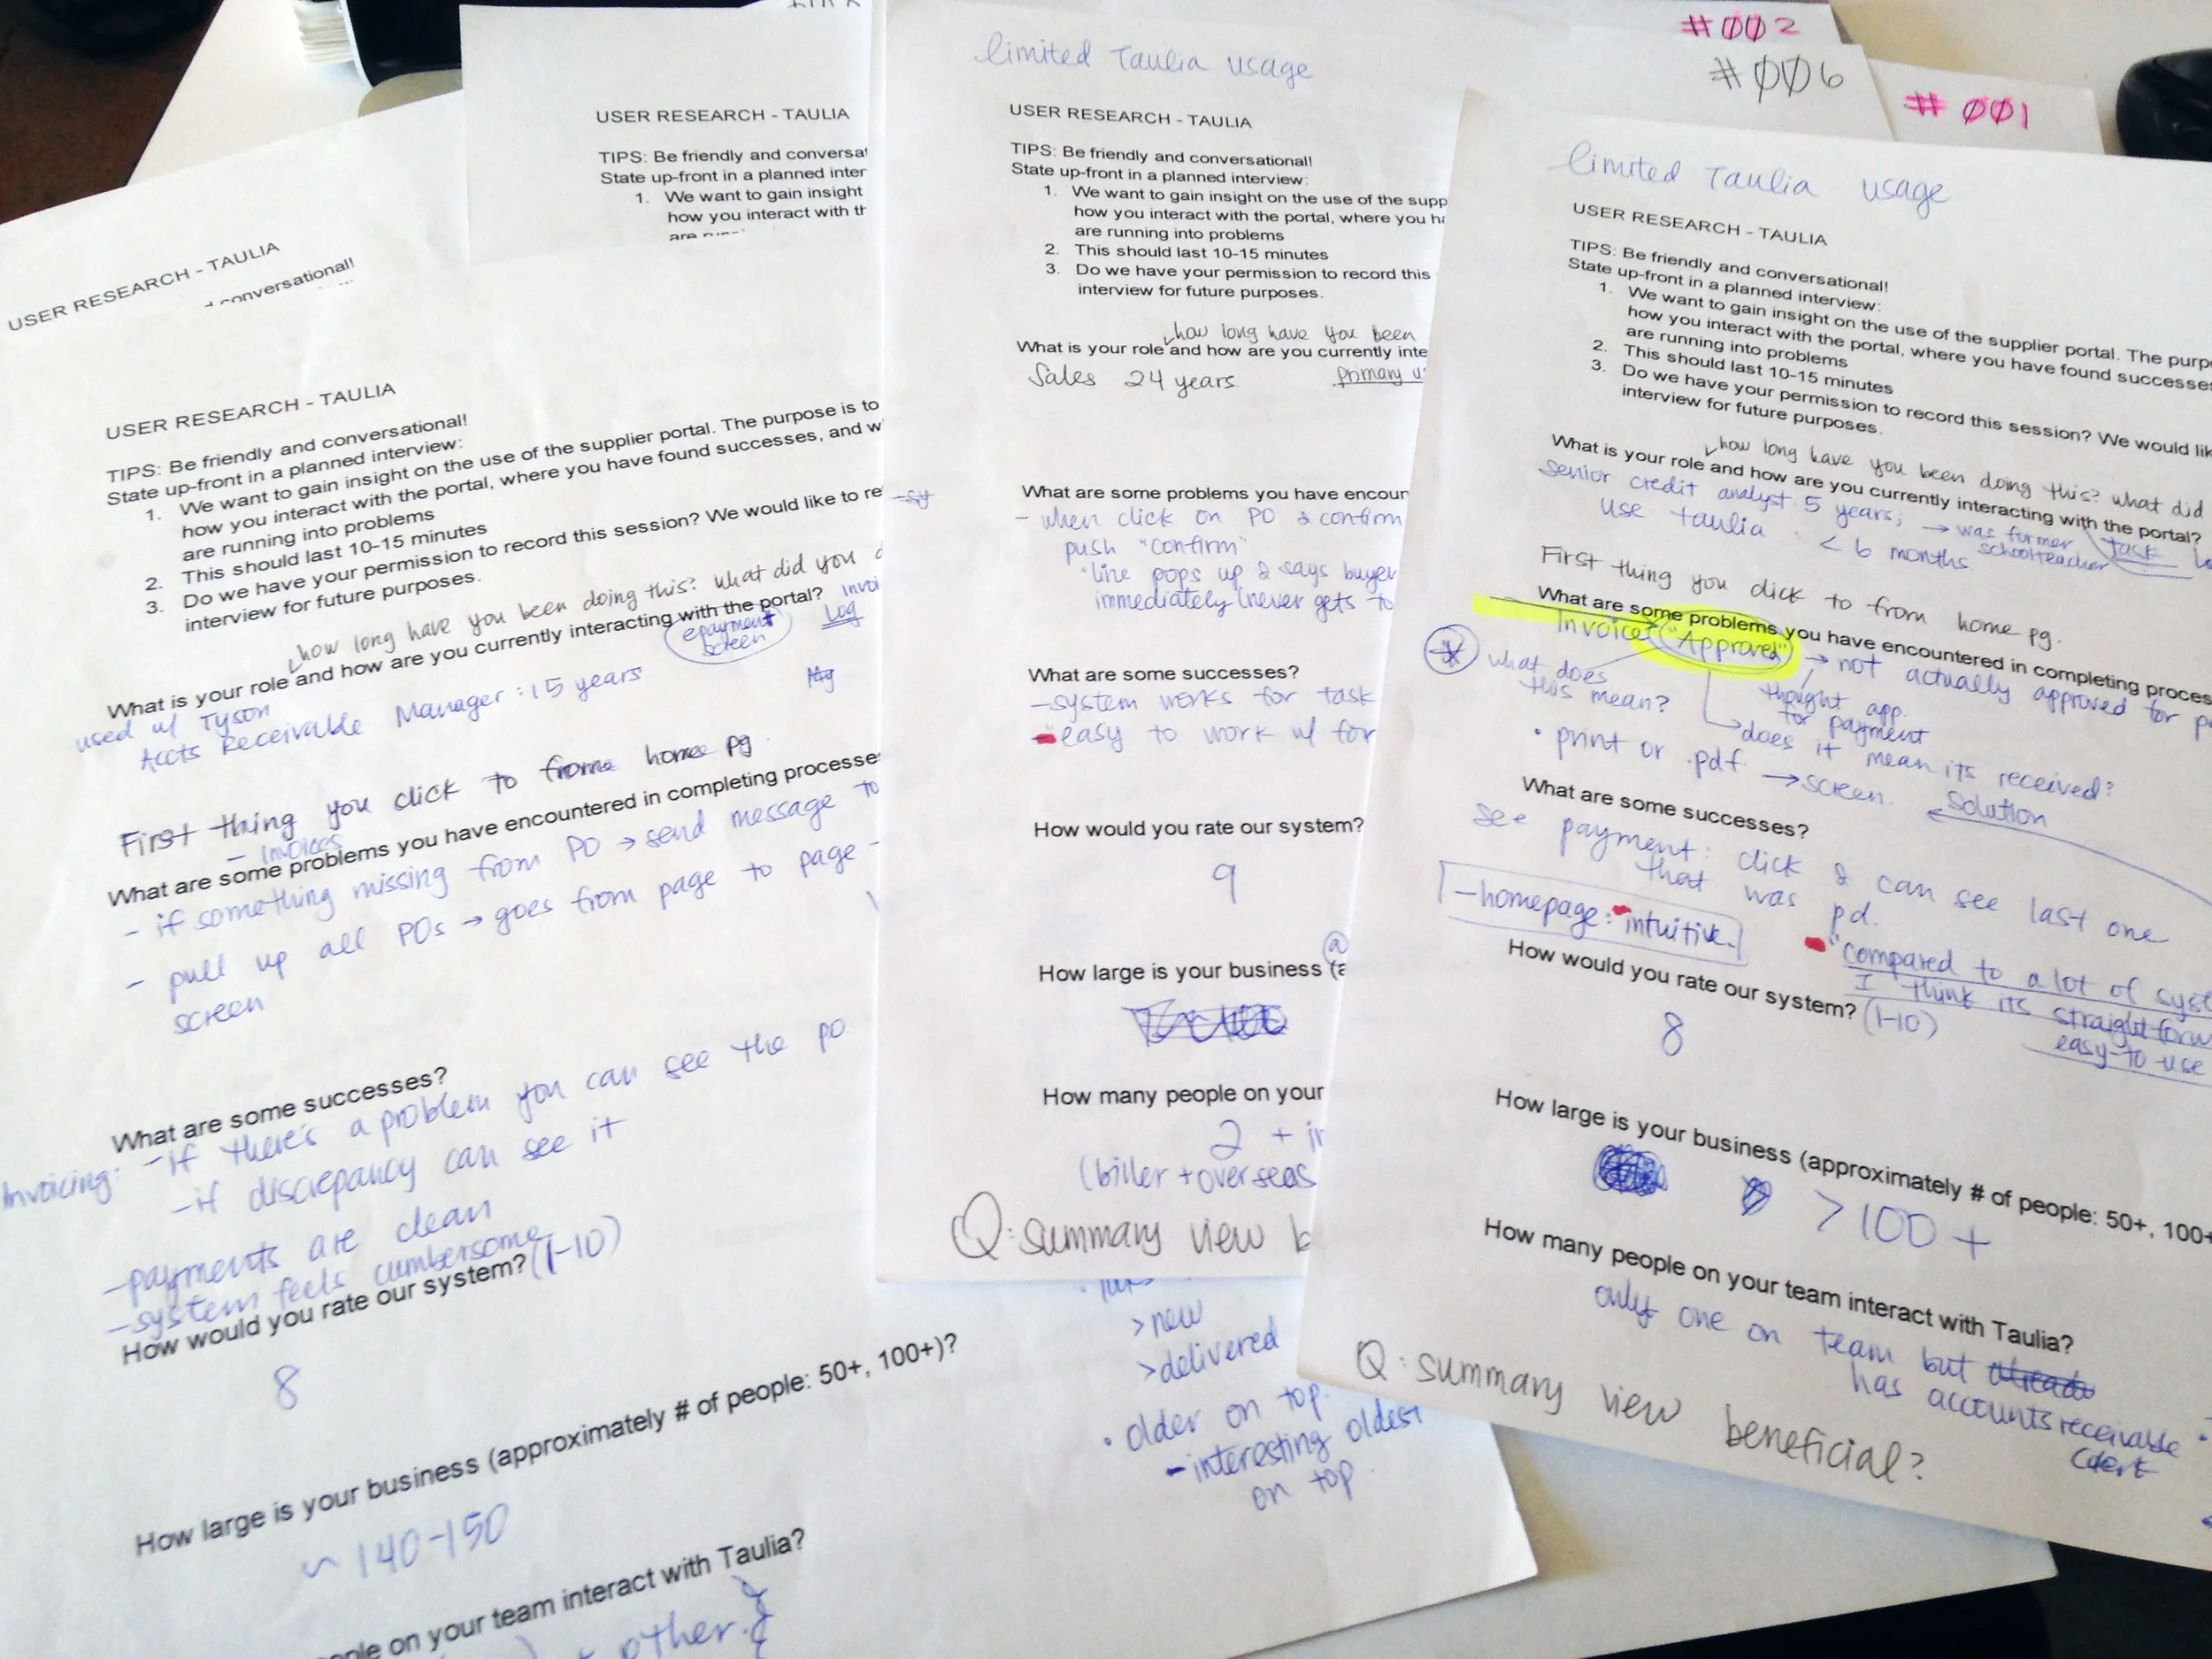 #002
#006
#001
USER RESEARCH - TAULIA
conversational!
USER RESEARCH - TAULIA
TIPS: Be friendly and conversat
State up-front in a planned inter
1. We want to gain insight
how you interact with th
are
USER RESEARCH - TAULIA
TIPS: Be friendly and conversational!
State up-front in a planned interview:
1. We want to gain insight on the use of the supplier portal. The purpose is to
how you interact with the portal, where you have found successes, and w
are running into problems
2. This should last 10-15 minutes
3. Do we have your permission to record this session? We would like to re
interview for future purposes.
how long have you been doing this? What did you d
What is your role and how are you currently interacting with the portal?
epayment screen
Invoi
Log
used w/ Tyson
Accts Receivable Manager: 15 years
First thing you click to from home pg.
- Invoices
What are some problems you have encountered in completing processes
- if something missing from PO → send message to
- pull up all POs → goes from page to page -
screen
What are some successes?
Invoicing: - if there's a problem you can see the po
- if discrepancy can see it
- payments are clean
- system feels cumbersome
How would you rate our system? (1-10)
8
How large is your business (approximately # of people: 50+, 100+)?
~ 140-150
ople on your team interact with Taulia?
other.
limited Taulia usage
USER RESEARCH - TAULIA
TIPS: Be friendly and conversational!
State up-front in a planned interview:
1. We want to gain insight on the use of the supp
how you interact with the portal, where you ha
are running into problems
2. This should last 10-15 minutes
3. Do we have your permission to record this
interview for future purposes.
how long have you been
What is your role and how are you currently inte
Sales 24 years
primary u
What are some problems you have encoun
- when click on PO & confirm
push "confirm"
line pops up & says buyer
immediately (never gets to
What are some successes?
- system works for task
- easy to work w/ for
How would you rate our system?
9
How large is your business (a
How many people on your
2 + in
(biller + overseas
Q: summary view b
> new
> delivered
• older on top.
- interesting oldest
on top
limited Taulia usage
USER RESEARCH - TAULIA
TIPS: Be friendly and conversational!
State up-front in a planned interview:
1. We want to gain insight on the use of the supplier portal. The purp
how you interact with the portal, where you have found successes
are running into problems
2. This should last 10-15 minutes
3. Do we have your permission to record this session? We would lik
interview for future purposes.
how long have you been doing this? What did
What is your role and how are you currently interacting with the portal?
senior credit analyst 5 years; → was former schoolteacher
task
use taulia: < 6 months.
First thing you click to from home pg.
What are some problems you have encountered in completing proces
Invoice "Approved" → not actually approved for p
what does this mean?
thought app. for payment
does it mean its received?
• print or .pdf. → screen.
solution
What are some successes?
see payment: click & can see last one
that was pd.
- homepage: intuitive.
"compared to a lot of syst
I think its straight forw
easy-to-use
How would you rate our system? (1-10)
8
How large is your business (approximately # of people: 50+, 100+
> 100 +
How many people on your team interact with Taulia?
only one on team but
has accounts receivable
Q: summary view beneficial?